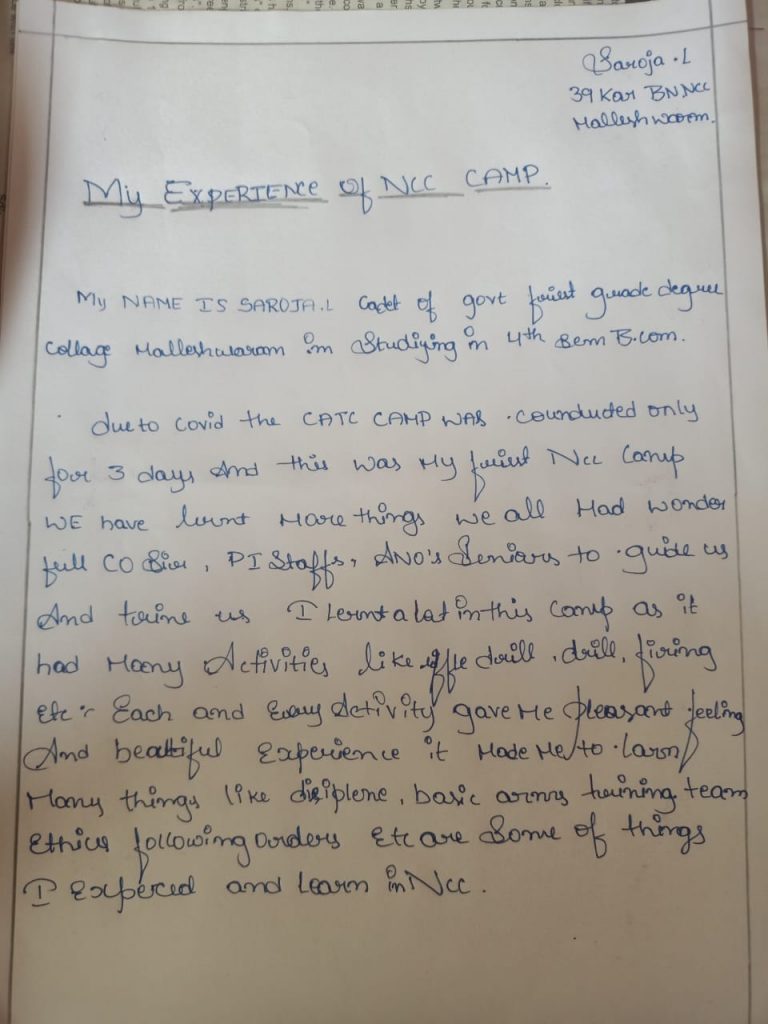 Saroja.L
39 Kar BN NCC
Malleshwaram.
My EXPERIENCE Of NCC CAMP.
My NAME IS SAROJA.L Cadet of govt first grade degree
Collage Malleshwaram im Studiying in 4th Sem B.com.
due to Covid the CATC CAMP WAS counducted only
for 3 days And this was My first Ncc Camp
WE have lernt More things we all Had wonder
full CO Sir, PI Staffs, ANO's Seniars to guide us
And traine us I lernt a lot in this Camp as it
had Many Activities like drill, drill, firing
Etc:- Each and Every Activity gave Me pleasant feeling
And beautiful Experience it Made Me to larn
Many things like disiplene, basic army training team
Ethics following orders Etc are Some of things
I Experced and Learn in Ncc.